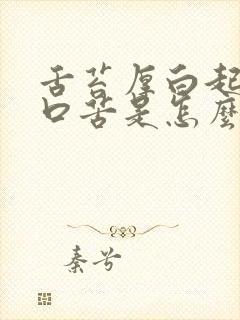 舌苔厚白起
口苦是怎麼
秦兮